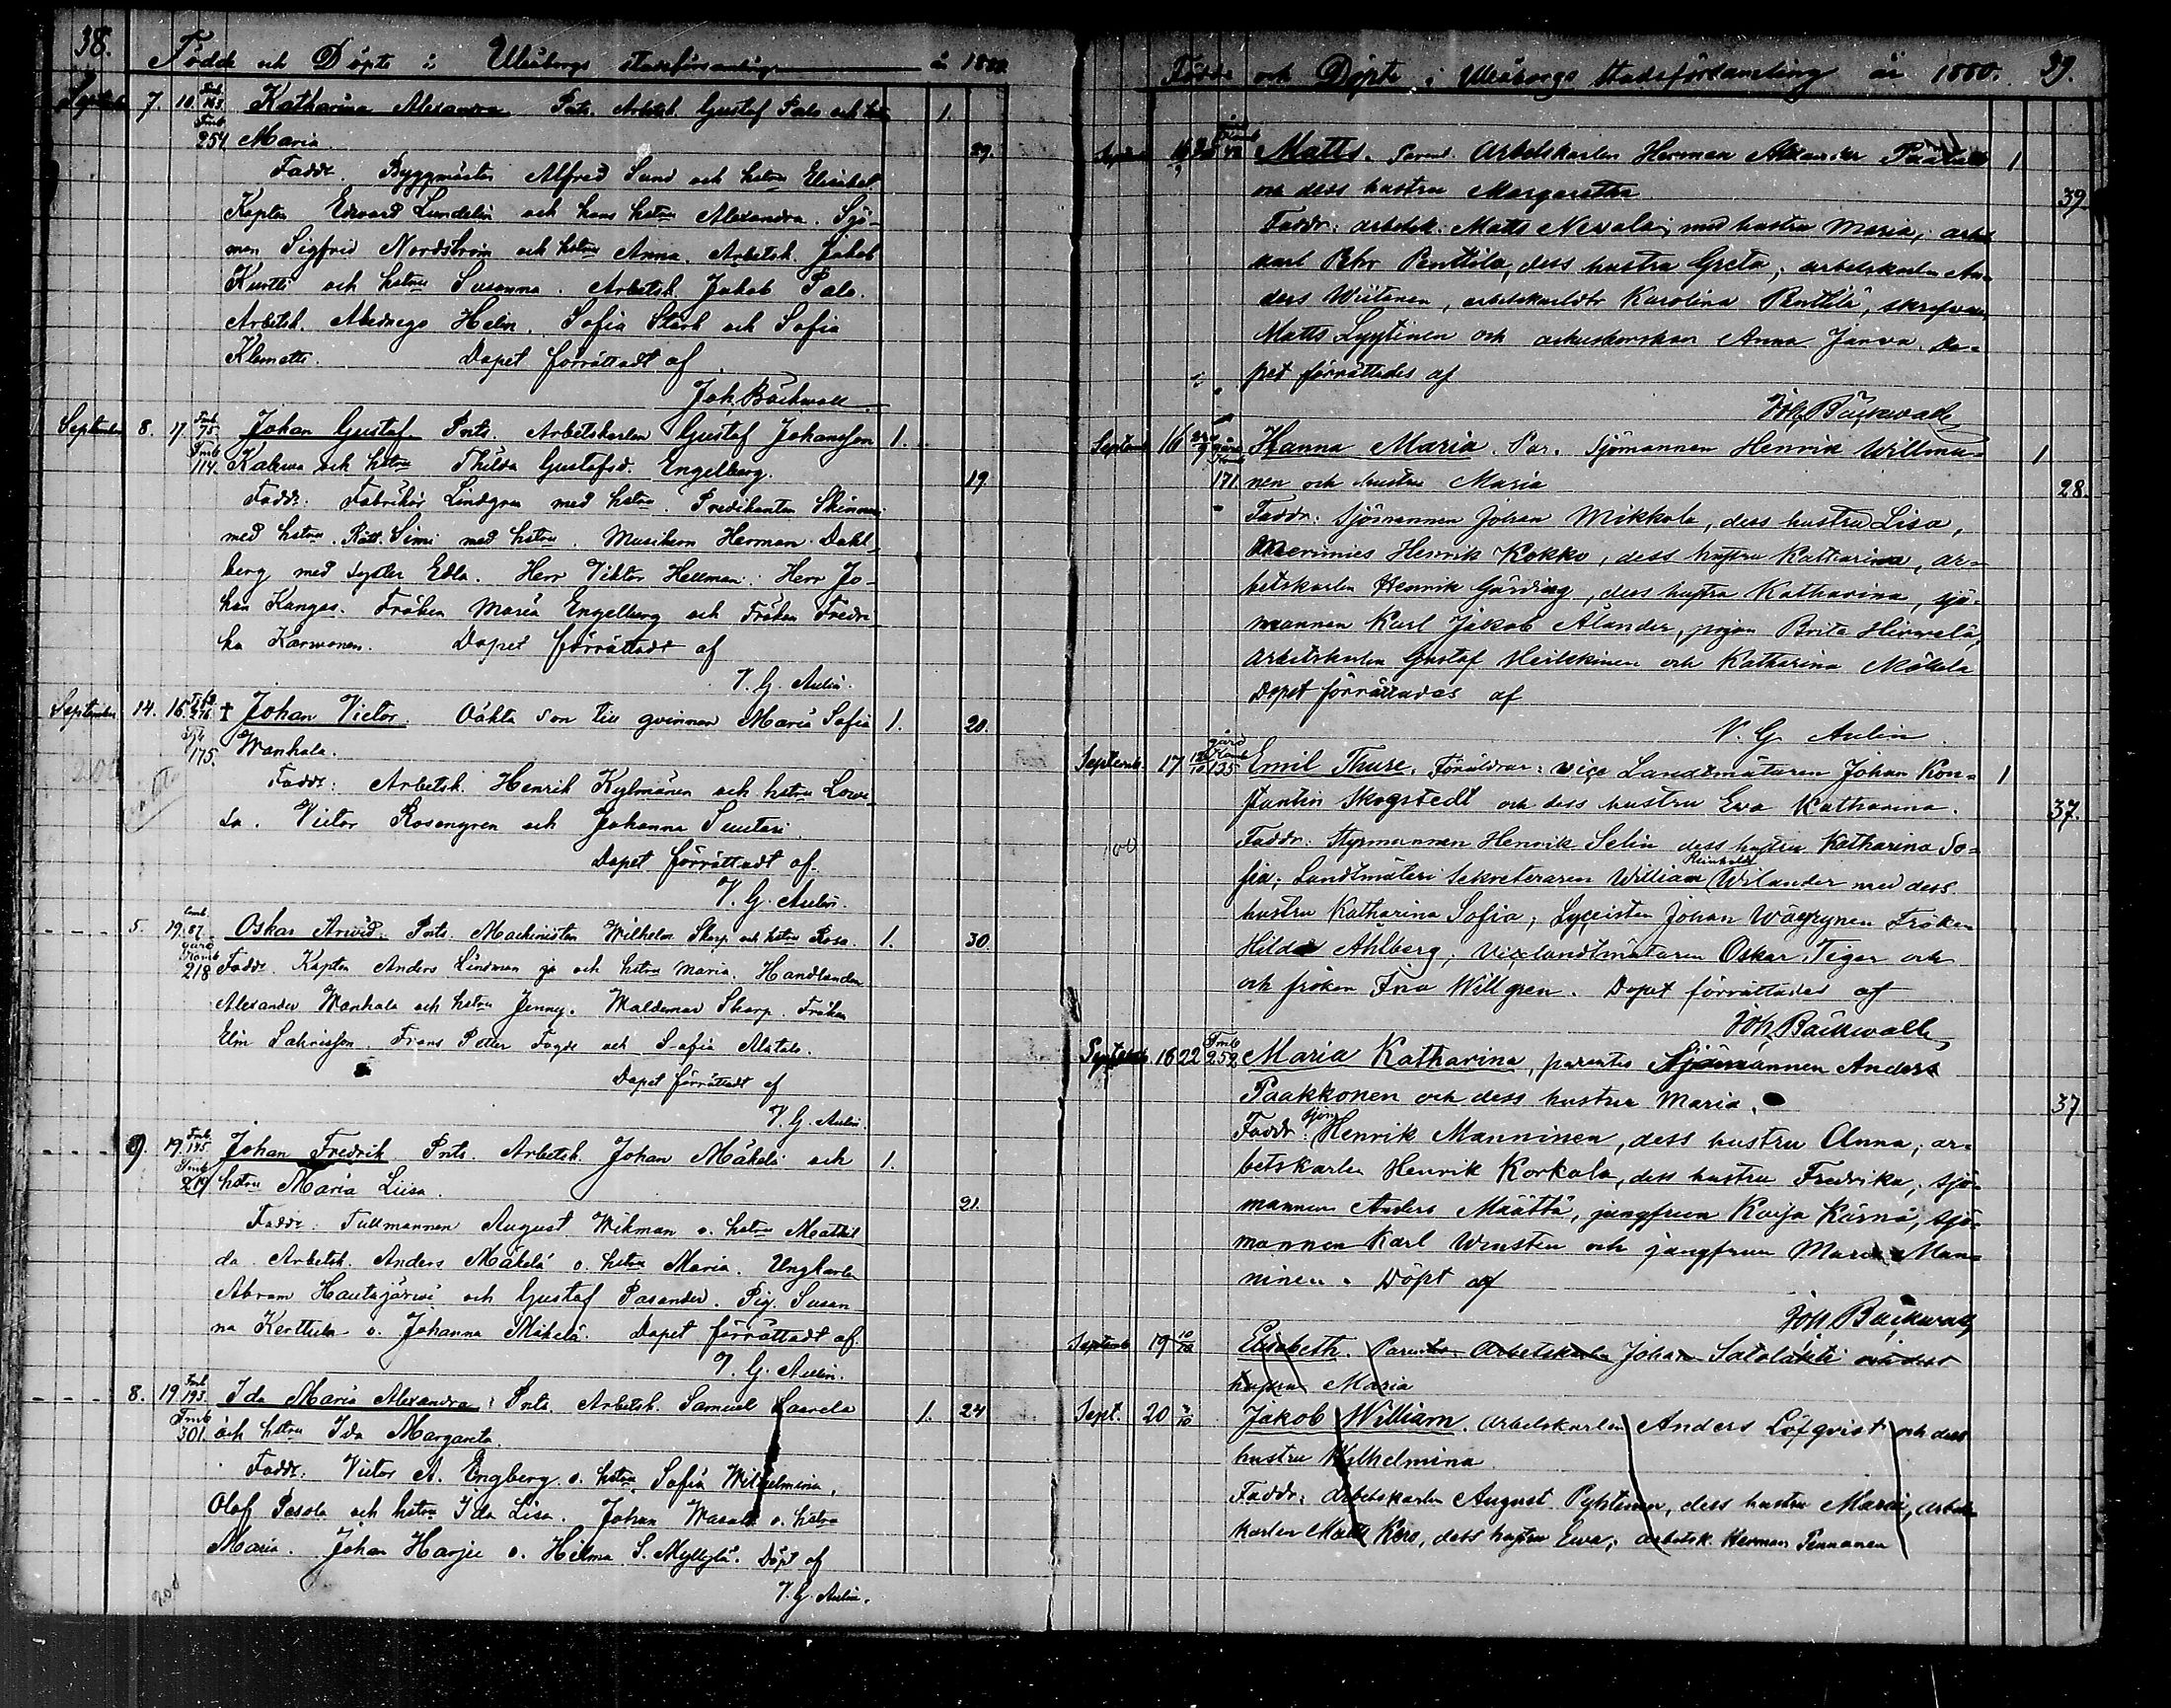 38.
Födde och Döpte i Uleåborgs stadsförsamling år 1880
7. 10. Katharina Alexandra Prts. Arbetsk. Gustaf Palo och hstru 1.
254 Maria. 29.
Faddr. Byggmästar Alfred Sund och hstru Elisabet
Kapten Edvard Lundelin och hans hstru Alexandra. Sjö-
man Sigfrid Nordström och hstru Anna. Arbetsk. Jakob
Kurtti och hstru Susanna. Arbetsk Jakob Palo.
Arbetsk. Abednego Helin. Sofia Stark och Sofia
Klemetti. Dopet förrättadt af
Joh. Bäckwall
September 8. 17 Johan Gustaf. Prts. Arbetskarlen Gustaf Johansson 1.
114. Kalewa och hstru Thilda Gustafsd. Engelberg. 19
Faddr. Fabrikör Lindgren med hstru. Predikanten Skinnari
med hstru. Rått. Simi med hstru. Musikern Herman Dahl-
berg med syster Edla. Herr Viktor Hellman. Herr Jo-
han Kangas. Fröken Maria Engelberg och Fröken Fredri-
ka Karvonen. Dopet förrättadt af
V. G. Aulin.
September 14. 16. 276. † Johan Victor. Oäkta son till qvinnan Maria Sofia 1. 20.
175. Wanhala.
Faddr: Arbetsk. Henrik Kylmänen och hstru Lowi-
sa. Victor Rosengren och Johanna Suutari.
Dopet förrättadt af
V. G. Aulin.
5. 19. 87. Oskar Arvid. Prts. Machinisten Wilhelm Skarp och hstru Rosa. 1. 30
218 Faddr. Kapten Anders Lindman jr och hstru Maria. Handlanden
Alexander Wanhala och hstru Jenny. Waldemar Skarp. Fröken
Elin Sahrisson. Frans Petter Fogde och Sofia Matolo.
Dopet förrättadt af
V. G. Aulin.
9. 19. 145. Johan Fredrik Prts. Arbetsk. Johan Mäkelä och 1.
219 hstru Maria Liisa. 21.
Faddr: Tullmannen August Wikman o. hstru Mathil-
da. Arbetsk. Anders Mäkelä o. hstru Maria. Ungkarlen
Abram Hautajärwi och Gustaf Pasander. Pig. Susan
na Kerttula o. Johanna Mäkelä. Dopet förrättadt af
V. G. Aulin.
8. 19 193. Ida Maria Alexandra: Prts. Arbetsk. Samuel Saarela 1. 24
301. och hstru Ida Margareta.
Faddr: Victor A. Engberg o. hstru Sofia Wilhelmina.
Olof Pesola och hstru Ida Lisa. Johan Wasala o. hstru
Maria. Johan Harju o. Hilma S. Myllylä. Döpt af
V. G. Aulin.
Födde och Döpte i Uleåborgs stadsförsamling år 1880. 39.
Matts. Parent. Arbetskarlen Herman Alexander 1
och dess hustru Margaretha 39
Faddr: arbetsk. Matts Nevala, med hustru Maria, arbets
karl Pehr Penttilä, dess hustru Greta; arbetskarlen An-
ders Wiitanen, arbetskarldtr Karolina Penttilä, skrefvaren
Matts Lyytinen och Anna Jarva. Do-
pet förrättades af
Joh. Bäckwall
Septemb 16 Hanna Maria. Par. Sjömannen Henrik Willmu- 1
171 nen och hustru Maria 28.
Faddr: Sjömannen Johan Mikkola, dess hustru Lisa,
Merimies Henrik Kokko, dess hustru Katharina, ar-
betskarlen Henrik Gärding, dess hustru Katharina, sjö-
mannen Karl Jakob Ålander, pigan Brita Hirvelä,
arbetskarlen Gustaf Heilikinen och Katharina Mäkelä
Dopet förrättades af
V. G. Aulin
Septemb. 17 135 Emil Thure. Föräldrar: vice Landtmätaren Johan Kon- 1
stantin Skogstedt och dess hustru Eva Katharina. 37.
Faddr: Styrmannen Henrik Selin dess hustru Katharina So-
fia; Landtmäteri Sekreteraren William Reinhold Wilander med dess
hustru Katharina Sofia; Lyceisten Johan Wäyrynen Fröken
Hilda Ahlberg; Vicelandtmätaren Oskar Tiger och
och fröken Ina Willgren. Dopet förrättades af
Joh. Bäckwall
Septemb 18 22 252 Maria Katharina, parentes Sjömannen Anders
Paakkonen och dess hustru Maria. 37
Faddr: Sjöm Henrik Manninen, dess hustru Anna; ar-
betskarlen Henrik Korkala, dess hustru Fredrika; sjö-
mannen Anders Määttä, jungfrun Kaisa Kärnä, sjö-
mannen Karl Wensten och jungfrun Maria Man-
ninen. Döpt af
Joh. Bäckwall
Septemb 19 10/10 Elisabeth. Parentes Arbetskarlen Johan Satolahti och dess
hustru Maria
Sept. 20 3/10 Jakob William. Arbetskarlen Anders Löfqvist och dess
hustru Wilhelmina
Faddr: Arbetskarlen August Pyhtinen, dess hustru Maria, arbets-
karlen Matts Kero, dess hustru Ewa; arbetsk. Herman Pennanen